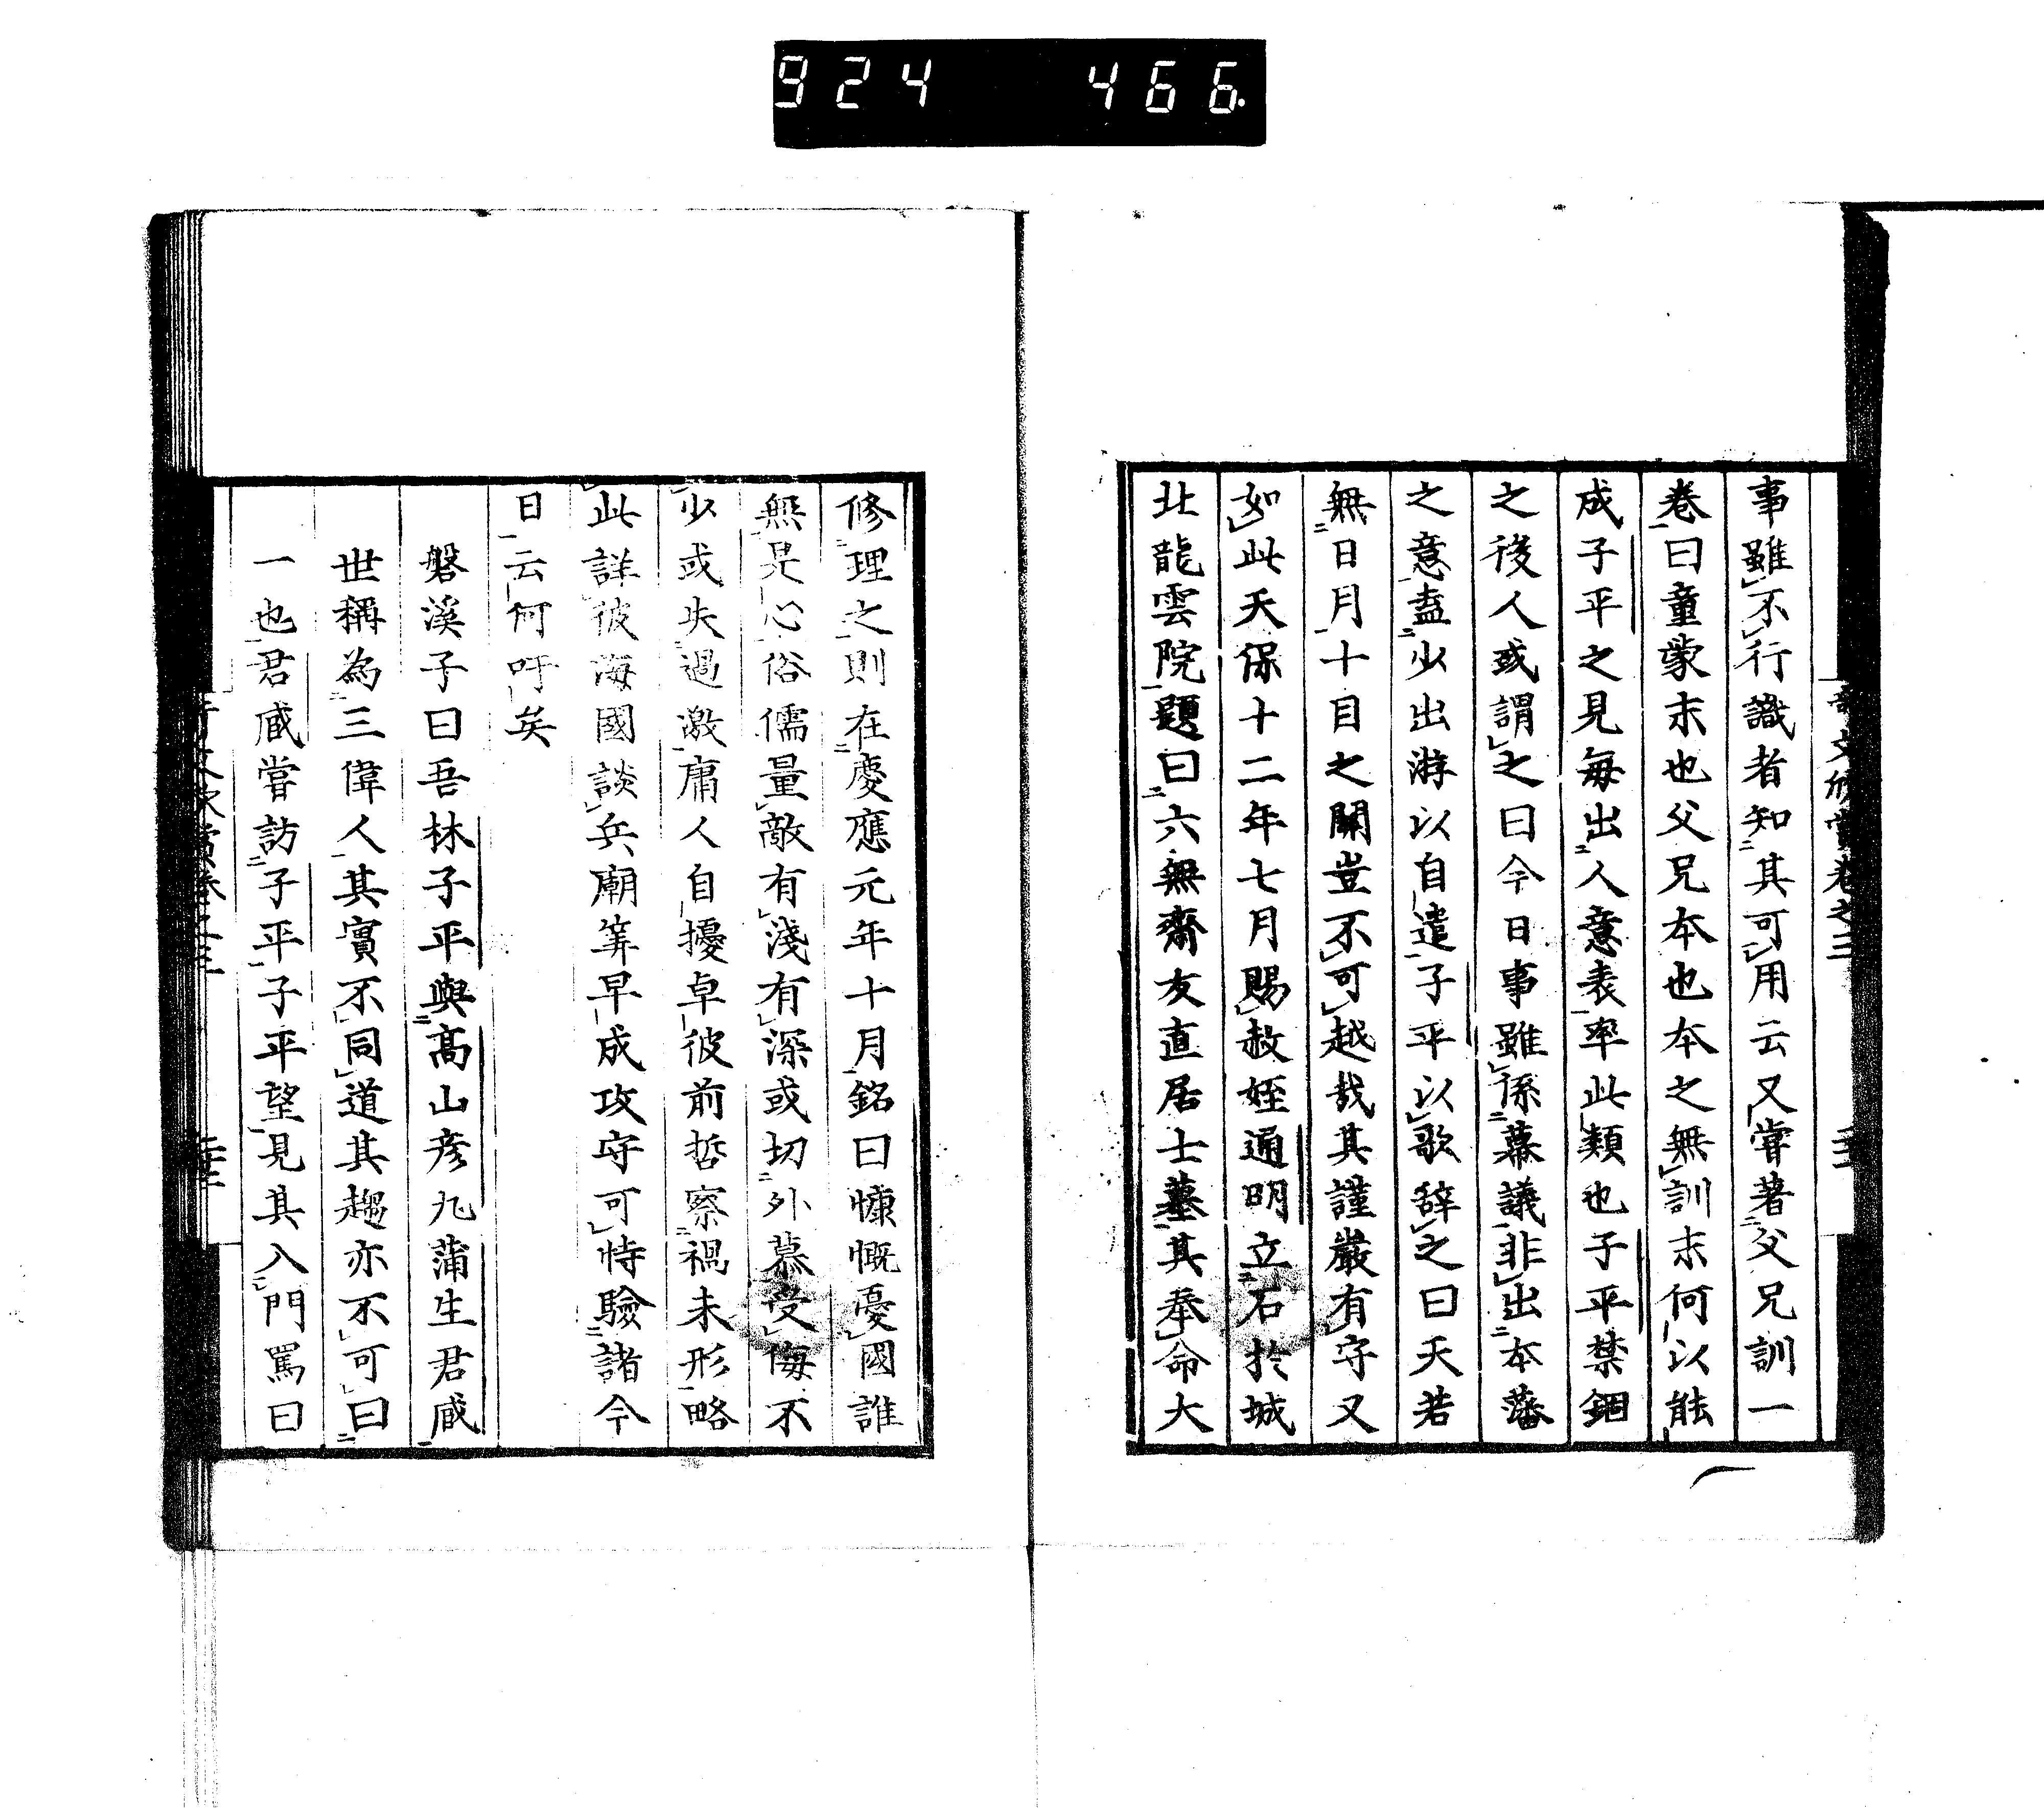 924 466
事雖不行識者知其可用云又嘗著父兄訓一
卷曰童蒙末也父兄本也本之無訓末何以能
成子平之見每出人意表率此類也子平禁錮
之後人或謂之曰今日事雖係幕議非出本藩
之意盍少出游以自遣子平以歌辞之曰天若
無日月十目之關豈不可越哉其謹嚴有守又
如此天保十二年七月賜赦姪通明立石於城
北龍雲院題曰六無齋友直居士墓其奉命大
修理之則在慶應元年十月銘曰慷慨憂國誰
無是心俗儒量敵有淺有深或切外慕受侮不
少或失過激庸人自擾卓彼前哲察禍未形略
此詳彼海國談兵廟筭早成攻守可恃驗諸今
日云何吁矣
磐溪子曰吾林子平與高山彥九蒲生君臧
世稱為三偉人其實不同道其趨亦不可曰
一也君臧嘗訪子平子平望見其入門罵曰